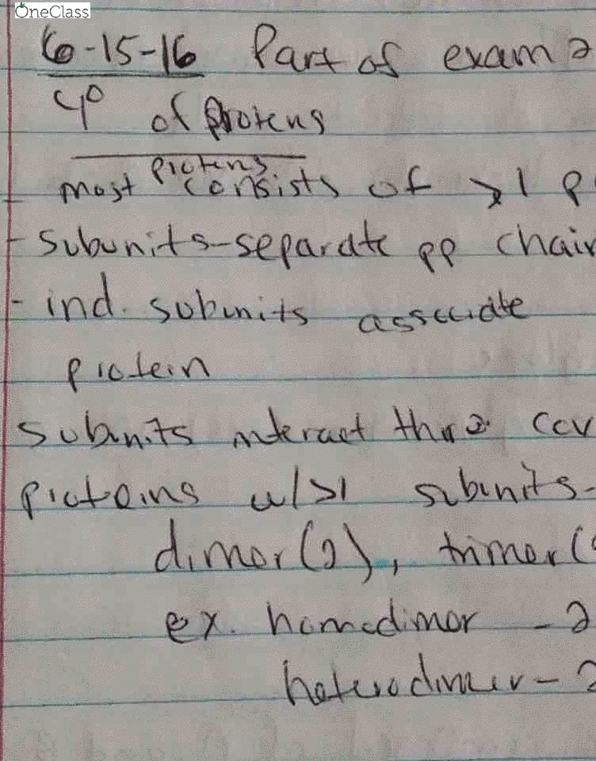 OneClass
6-15-16 Part of exam 2
4° of proteins
proteins
most consists of >1 P
- subunits-separate pp chain
- ind. subunits associate
protein
subunits interact thr 2 cov
proteins w/>1 subunits-
dimer(2), trimer(
ex. homodimer - 2
heterodimer - 2